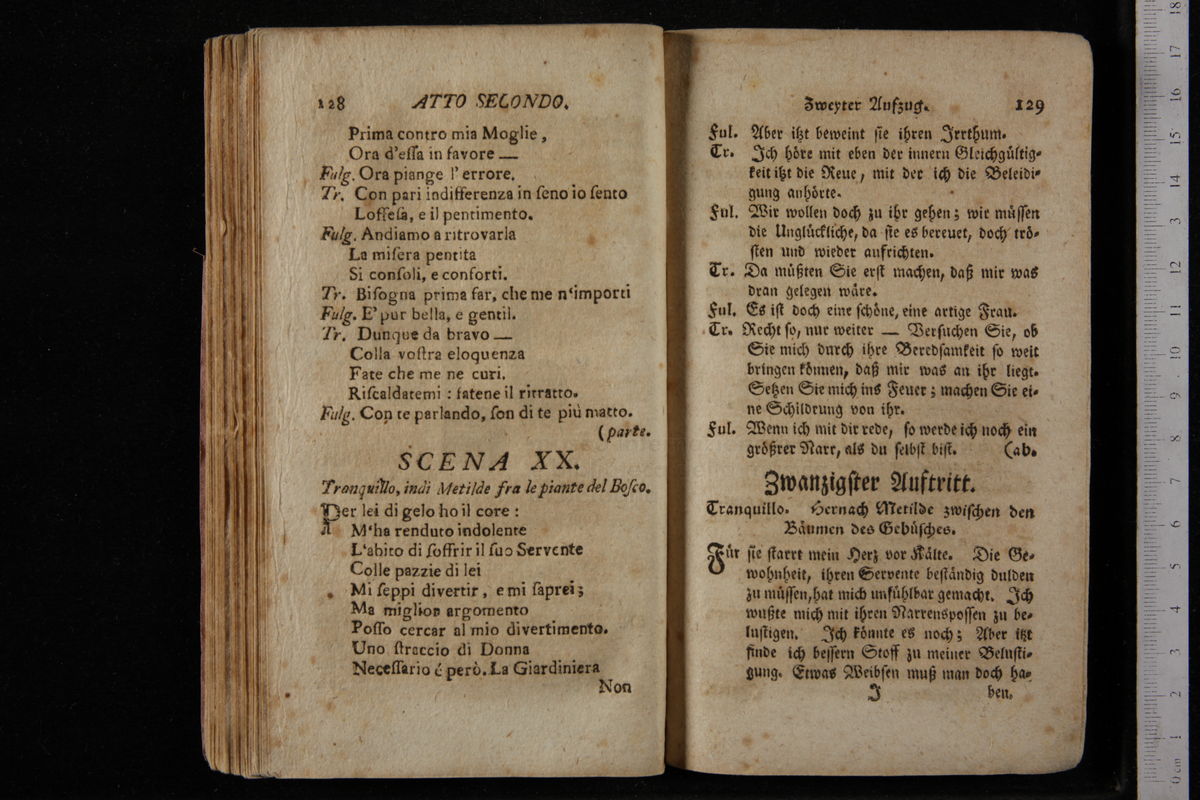 128 ATTO SECONDO.
Prima contro mia Moglie,
Ora d'eſſa in favore —
Fulg. Ora piange l'errore.
Tr. Con pari indifferenza in ſeno io ſento
Loffeſa, e il pentimento.
Fulg. Andiamo a ritrovarla
La miſera pentita
Si conſoli, e conforti.
Tr. Biſogna prima far, che me n'importi
Fulg. E' pur bella, e gentil.
Tr. Dunque da bravo —
Colla voſtra eloquenza
Fate che me ne curi.
Riſcaldatemi : fatene il ritratto.
Fulg. Con te parlando, ſon di te più matto.
(parte.
SCENA XX.
Tranquillo, indi Metilde fra le piante del Boſco.
Per lei di gelo ho il core :
M'ha renduto indolente
L'abito di ſoffrir il ſuo Servente
Colle pazzie di lei
Mi ſeppi divertir, e mi ſaprei;
Ma miglior argomento
Poſſo cercar al mio divertimento.
Uno ſtraccio di Donna
Neceſſario é però. La Giardiniera
Non
Zweyter Aufzug. 129
Ful. Aber itzt beweint ſie ihren Irrthum.
Tr. Ich höre mit eben der innern Gleichgültig-
keit itzt die Reue, mit der ich die Beleidi-
gung anhörte.
Ful. Wir wollen doch zu ihr gehen; wir müſſen
die Unglückliche, da ſie es bereuet, doch trö-
ſten und wieder aufrichten.
Tr. Da müßten Sie erſt machen, daß mir was
dran gelegen wäre.
Ful. Es iſt doch eine ſchöne, eine artige Frau.
Tr. Recht ſo, nur weiter — Verſuchen Sie, ob
Sie mich durch ihre Beredſamkeit ſo weit
bringen können, daß mir was an ihr liegt.
Setzen Sie mich ins Feuer; machen Sie ei-
ne Schildrung von ihr.
Ful. Wenn ich mit dir rede, ſo werde ich noch ein
größrer Narr, als du ſelbſt biſt. (ab.
Zwanzigſter Auftritt.
Tranquillo. Hernach Metilde zwiſchen den
Bäumen des Gebüſches.
Für ſie ſtarrt mein Herz vor Kälte. Die Ge-
wohnheit, ihren Servente beſtändig dulden
zu müſſen, hat mich unfühlbar gemacht. Ich
wußte mich mit ihren Narrenspoſſen zu be-
luſtigen. Ich könnte es noch; Aber itzt
finde ich beſſern Stoff zu meiner Beluſti-
gung. Etwas Weibſen muß man doch ha-
I ben.
0 cm 1 2 3 4 5 6 7 8 9 10 11 12 13 14 15 16 17 18